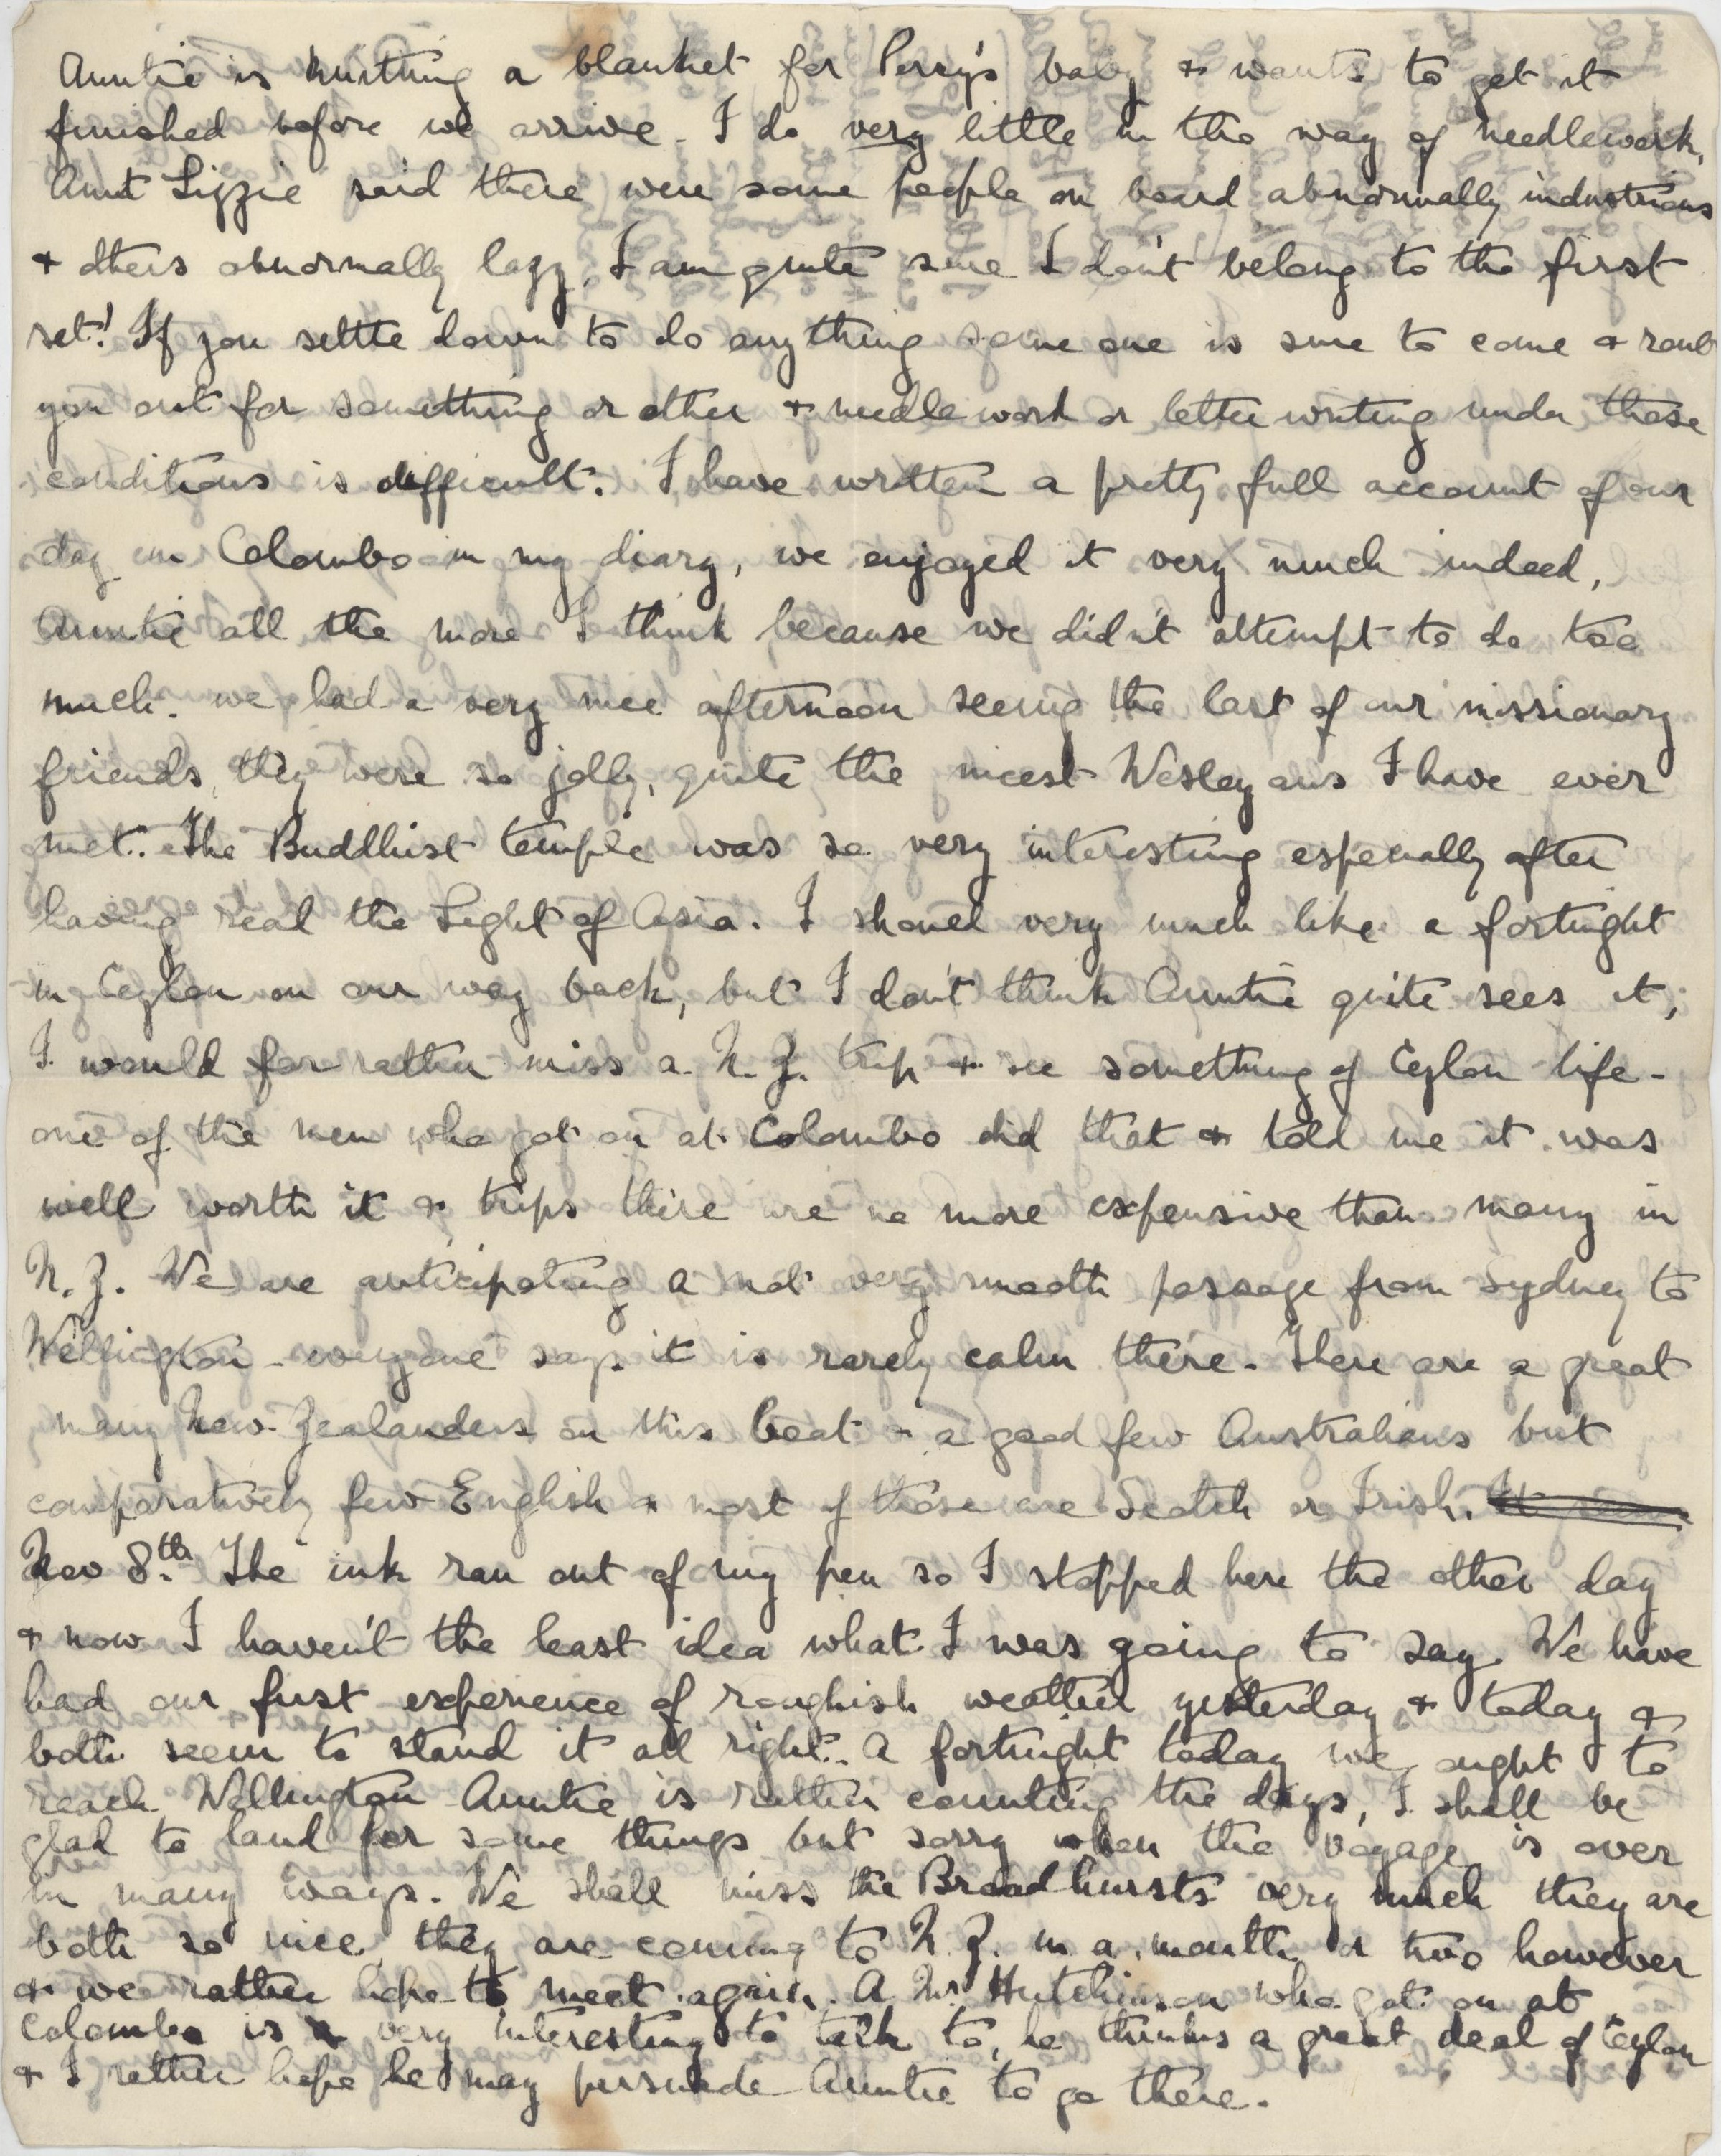 Auntie is knitting a blanket for Perry's baby & wants to get it
finished before we arrive. I do very little in the way of needlework,
Aunt Lizzie said there were some people on board abnormally industrious
& others abnormally lazy, I am quite sure I don't belong to the first
set! If you settle down to do anything some one is sure to come & rout
you out for something or other & needlework or letter writing under these
conditions is difficult. I have written a pretty full account of our
day in Colombo in my diary, we enjoyed it very much indeed,
Auntie all the more I think because we didn't attempt to do too
much. We had a very nice afternoon seeing the last of our missionary
friends, they were so jolly, quite the nicest Wesleyans I have ever
met. The Buddhist temple was so very interesting especially after
having read the Light of Asia. I should very much like a fortnight
in Ceylon on our way back, but I don't think Auntie quite sees it,
I would far rather miss a N.Z. trip & see something of Ceylon life -
one of the men who got on at Colombo did that & told me it was
well worth it & trips there are no more expensive than many in
N.Z. We are anticipating a not very smooth passage from Sydney to
Wellington - everyone says it is rarely calm there. There are a great
many New Zealanders on this boat - a good few Australians but
comparatively few English & most of those are Scotch or Irish.
Nov 8th. The ink ran out of my pen so I stopped here the other day
& now I haven't the least idea what I was going to say. We have
had our first experience of roughish weather yesterday & today &
both seem to stand it all right. A fortnight today we ought to
reach Wellington Auntie is rather counting the days, I shall be
glad to land for some things but sorry when the voyage is over
in many ways. We shall miss the Broadhursts very much they are
both so nice, they are coming to N.Z. in a month or two however
& we rather hope to meet again. A Mr Hutchinson who got on at
Colombo is very interesting to talk to, he thinks a great deal of Ceylon
& I rather hope he may persuade Auntie to go there.